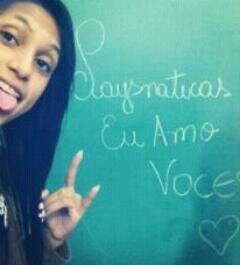 Playsnaticas
Eu Amo
VOCE